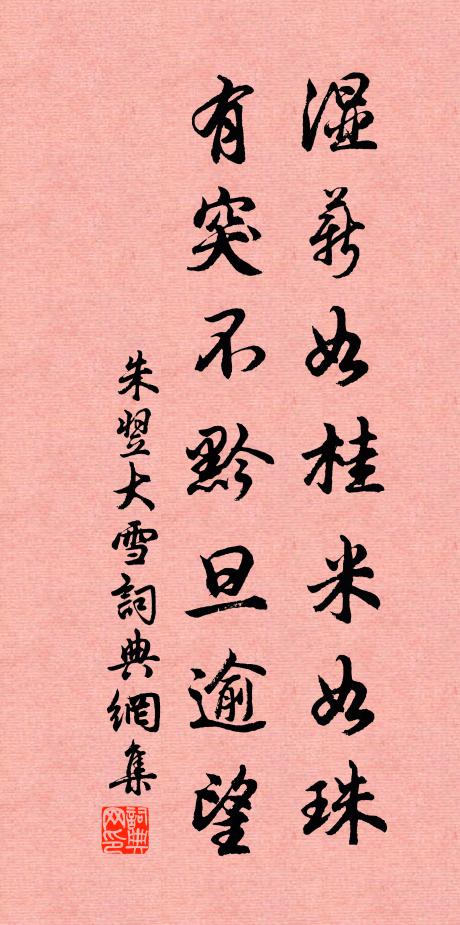 湿薪如桂米如珠
有突不黔旦逾望
朱翌大雪詞典網集
詞典网印